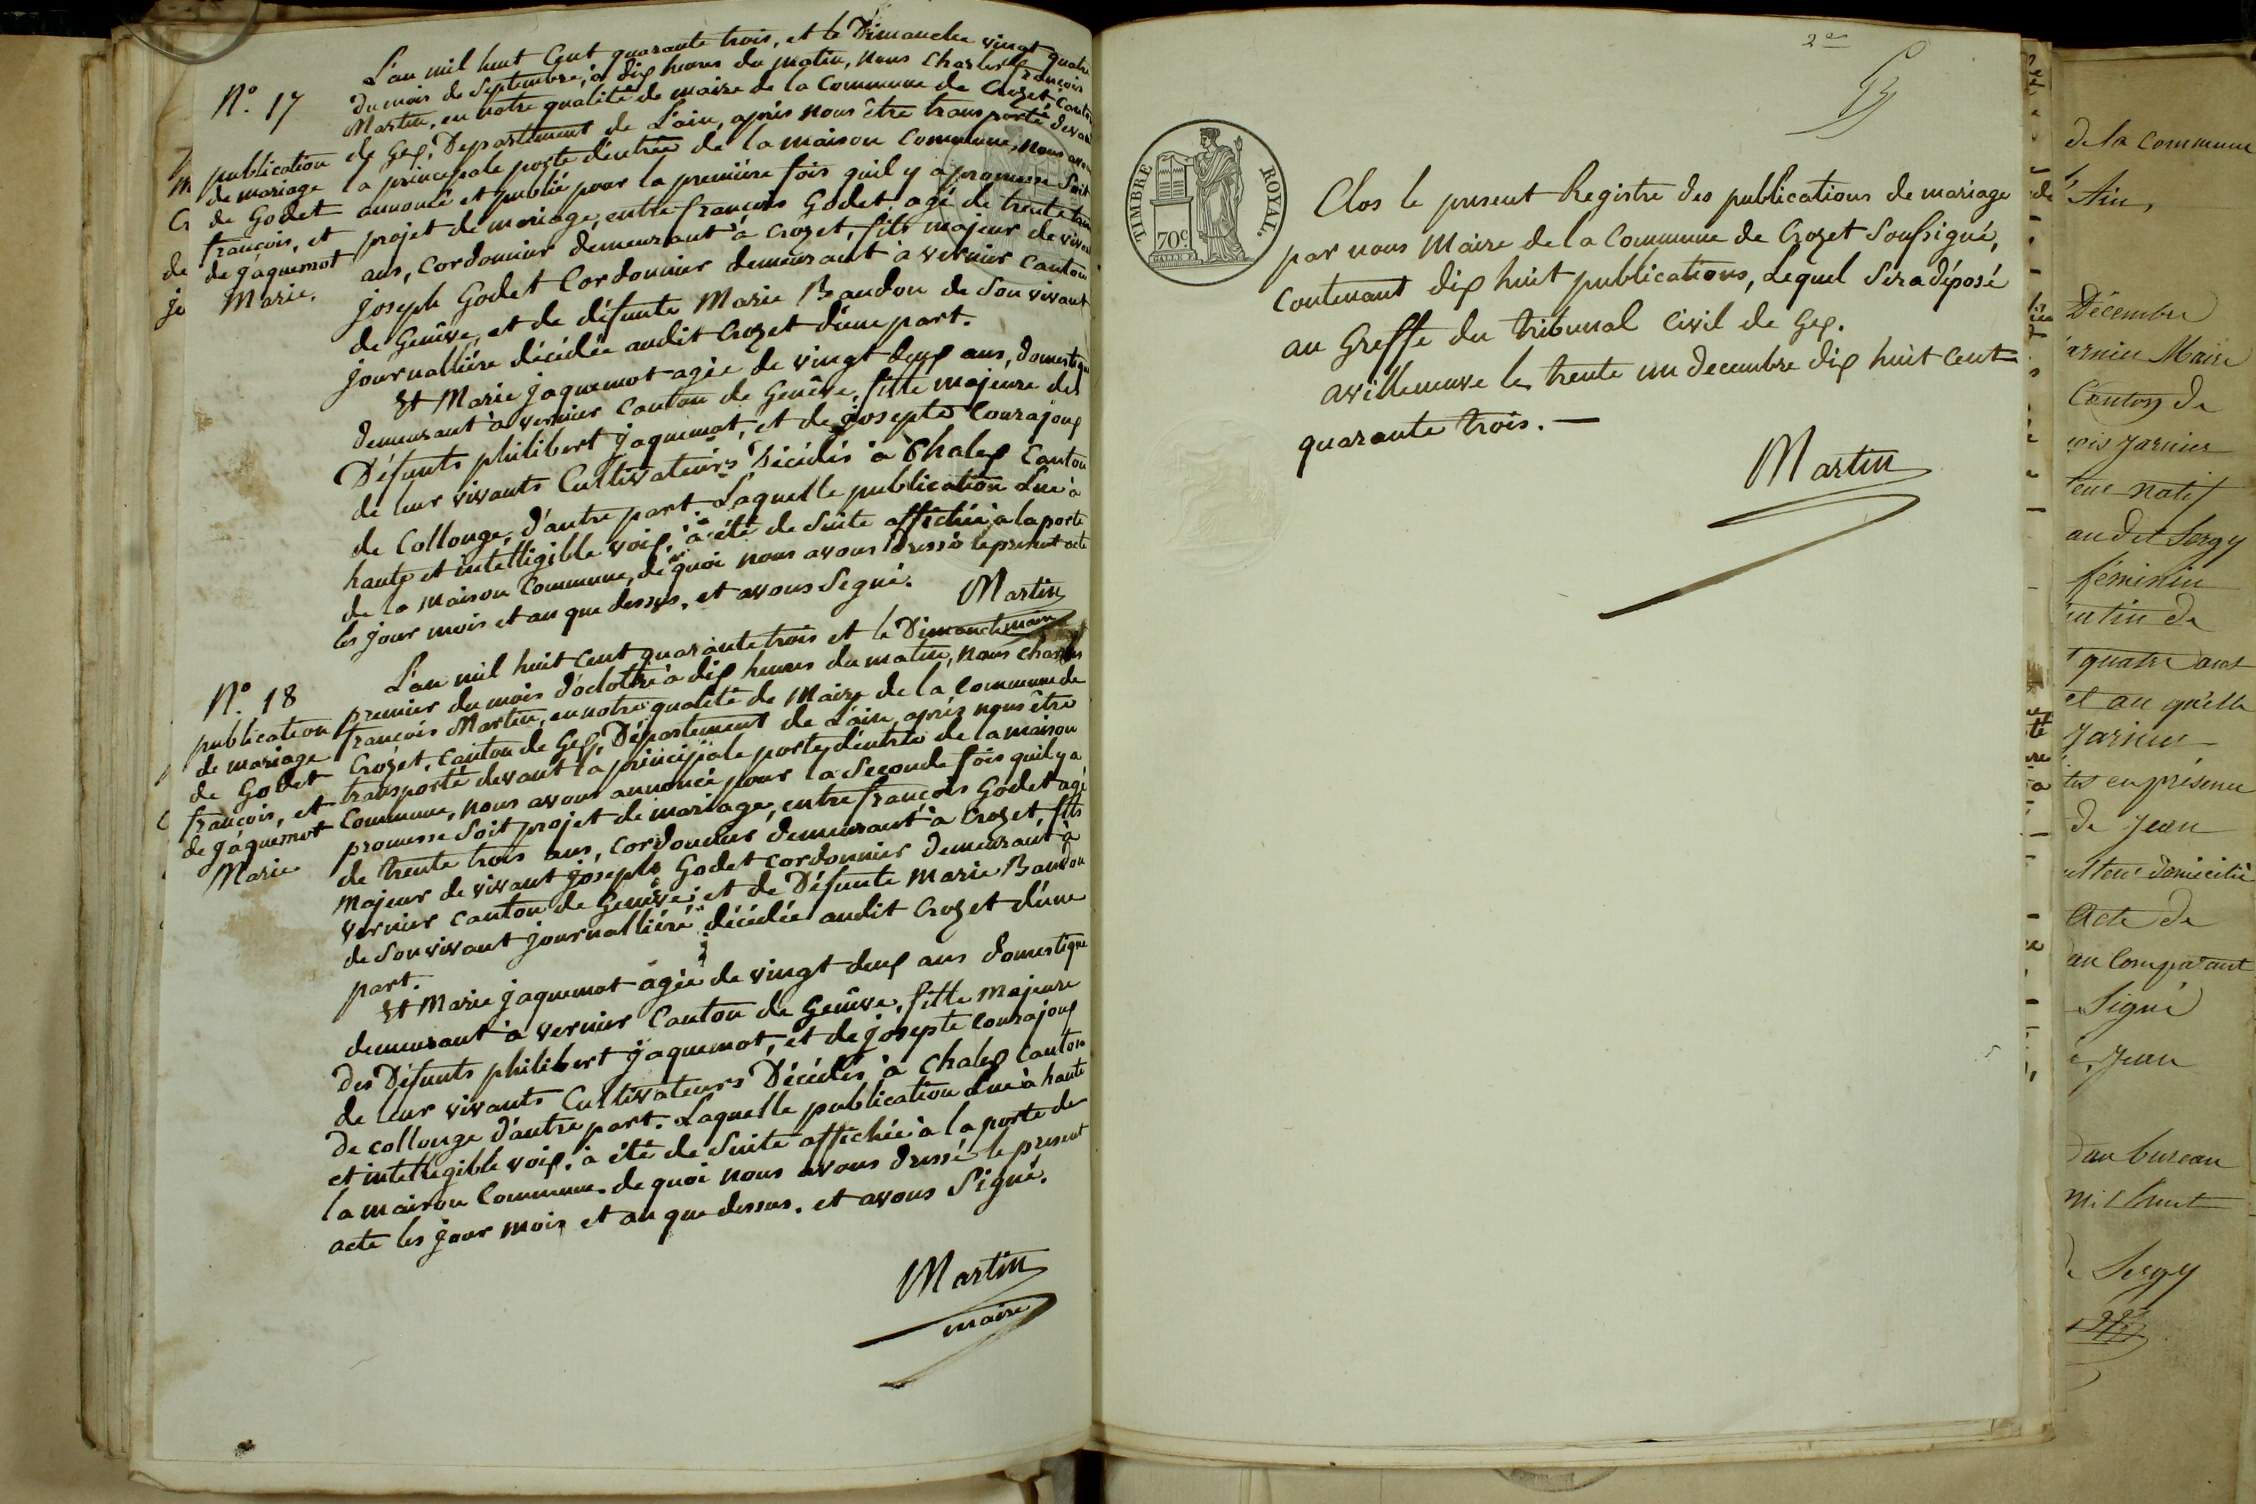 N.° 17
publication
de mariage
de Godet
françois, et
de jaquemot
Marie.
L'an mil huit Cent quarante trois, et le Dimanche vingt quatre
du mois de Septembre, à dix heures du matin, nous Charles françois
Martin, en notre qualité de maire de la Commune de Crozet, Canton
de Gex, Departement de L'ain, après nous être transporté devant
la principale porte d'entrée de la maison Commune, nous avons
annoncé et publié pour la première fois qu'il y a promesse Soit
projet de mariage, entre françois Godet agé de trente trois
ans, Cordonnier demeurant à Crozet, fils majeur de vivant
joseph Godet Cordonnier demeurant à vernier Canton
de Genève, et de défunte Marie Baudon de Son vivant
journallière décédée audit Crozet d'une part.
Et Marie jaquemot agée de vingt deux ans, domestique
demeurant à vernier Canton de Genève, fille majeure des
Défunts philibert jaquemot, et de josepte Courajoux
de leur vivants Cultivateurs Décédés à Chalex Canton
de Collonge, d'autre part. Laquelle publication Lue à
haute et intelligible voix, à été de Suite affichée à la porte
de la Maison Commune, de quoi nous avons dressé le présent acte
les jour mois et an que dessus, et avons Signé.
Martin
maire
N.° 18
publication
de mariage
de Godet
françois, et
de jaquemot
Marie
L'an mil huit Cent quarante trois et le Dimanche
premier du mois d'octobre à dix heures du matin, nous Charles
françois Martin, en notre qualité de Maire de la Commune de
Crozet, Canton de Gex, Département de L'ain, après nous être
transporté devant la principale porte d'entrée de la maison
Commune, nous avons annoncé pour la Seconde fois qu'il y a
promesse Soit projet de mariage, entre françois Godet agé
de trente trois ans, Cordonnier demeurant à Crozet, fils
Majeur de vivant joseph Godet Cordonnier demeurant à
vernier Canton de Genève; et de Défunte Marie Baudon
de Son vivant journallière décédée audit Crozet d'une
part.
Et Marie jaquemot agée de vingt deux ans domestique
demeurant à vernier Canton de Genève, fille Majeure
des Défunts philibert jaquemot, et de josepte Courajoux
de leur vivants Cultivateurs Décédés à Chalex Canton
de collonge d'autre part. Laquelle publication Lue à haute
et intelligible voix, à été de Suite affichée à la porte de
la maison Commune. de quoi nous avons dressé le present
acte les jour mois et an que dessus. et avons Signé.
Martin
maire
2e
TIMBRE ROYAL.
70c
Clos le present Registre des publications de mariage
par nous Maire de la Commune de Crozet Soussigné,
Contenant dix huit publications, Lequel Sera déposé
au Greffe du tribunal Civil de Gex.
a villeneuve le trente un decembre dix huit Cent
quarante trois. —
Martin
de la Commune
Ain,
Décembre
Maire
Canton de
Jarnier
natif
audit Sergy
féminin
de
quatre
et an qu'elle
Jarnier
en présence
de Jean
domicilié
Acte de
Comparant
Signé
Jean
au bureau
mil huit
Sergy